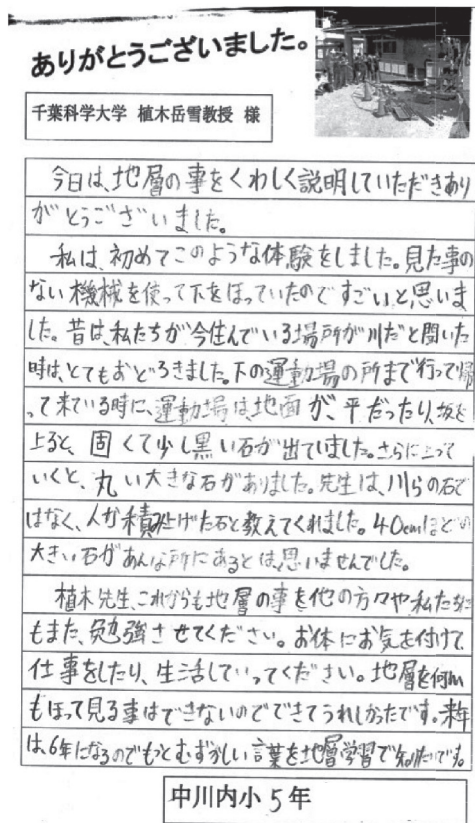 ありがとうございました。
千葉科学大学 植木岳雪教授 様
今日は、地層の事をくわしく説明していただきあり
がとうございました。
私は、初めてこのような体験をしました。見た事の
ない機械を使って下をほっていたのですごいと思いま
した。昔は、私たちが今住んでいる場所が川だと聞いた
時は、とてもおどろきました。下の運動場の所まで行って帰
って来ている時に、運動場は、地面が、平だったり、坂を
上ると、固くて少し黒い石が出ていました。さらに上って
いくと、丸い大きな石がありました。先生は、川らの石で
はなく、人が積み上げた石と教えてくれました。40cmほどの
大きい石があんな所にあるとは、思いませんでした。
植木先生、これからも地層の事を他の方々や私たちに
もまた、勉強させてください。お体にお気を付けて
仕事をしたり、生活していってください。地層を何m
もほって見る事はできないのでできてうれしかったです。来年
は、6年になるのでもっとむずかしい言葉を地層学習で知りたいです。
中川内小5年